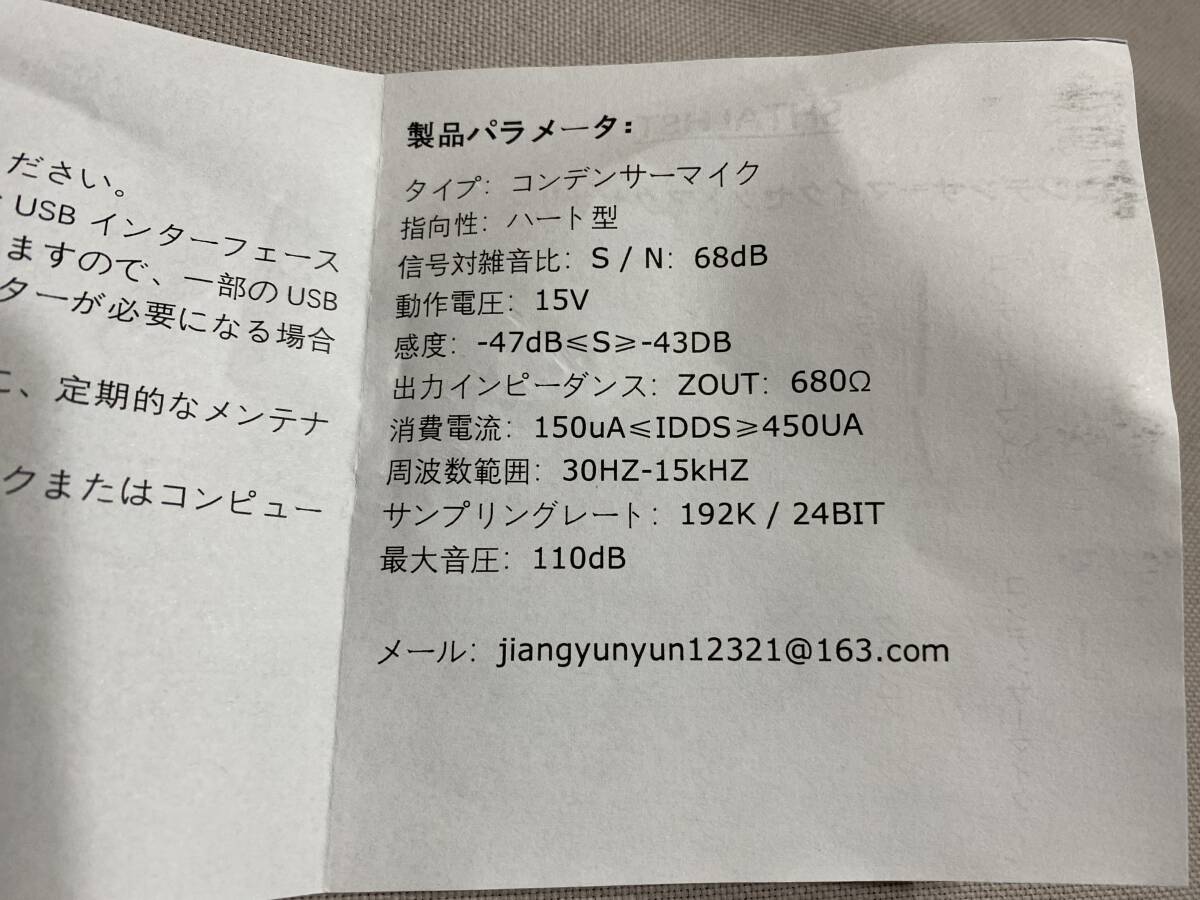 ださい。
USB インターフェース
ますので、一部の USB
ターが必要になる場合
、定期的なメンテナ
クまたはコンピュー
製品パラメータ:
タイプ: コンデンサーマイク
指向性: ハート型
信号対雑音比: S / N: 68dB
動作電圧: 15V
感度: -47dB≤S≥-43DB
出力インピーダンス: ZOUT: 680Ω
消費電流: 150uA≤IDDS≥450UA
周波数範囲: 30HZ-15kHZ
サンプリングレート: 192K / 24BIT
最大音圧: 110dB
メール: jiangyunyun12321@163.com